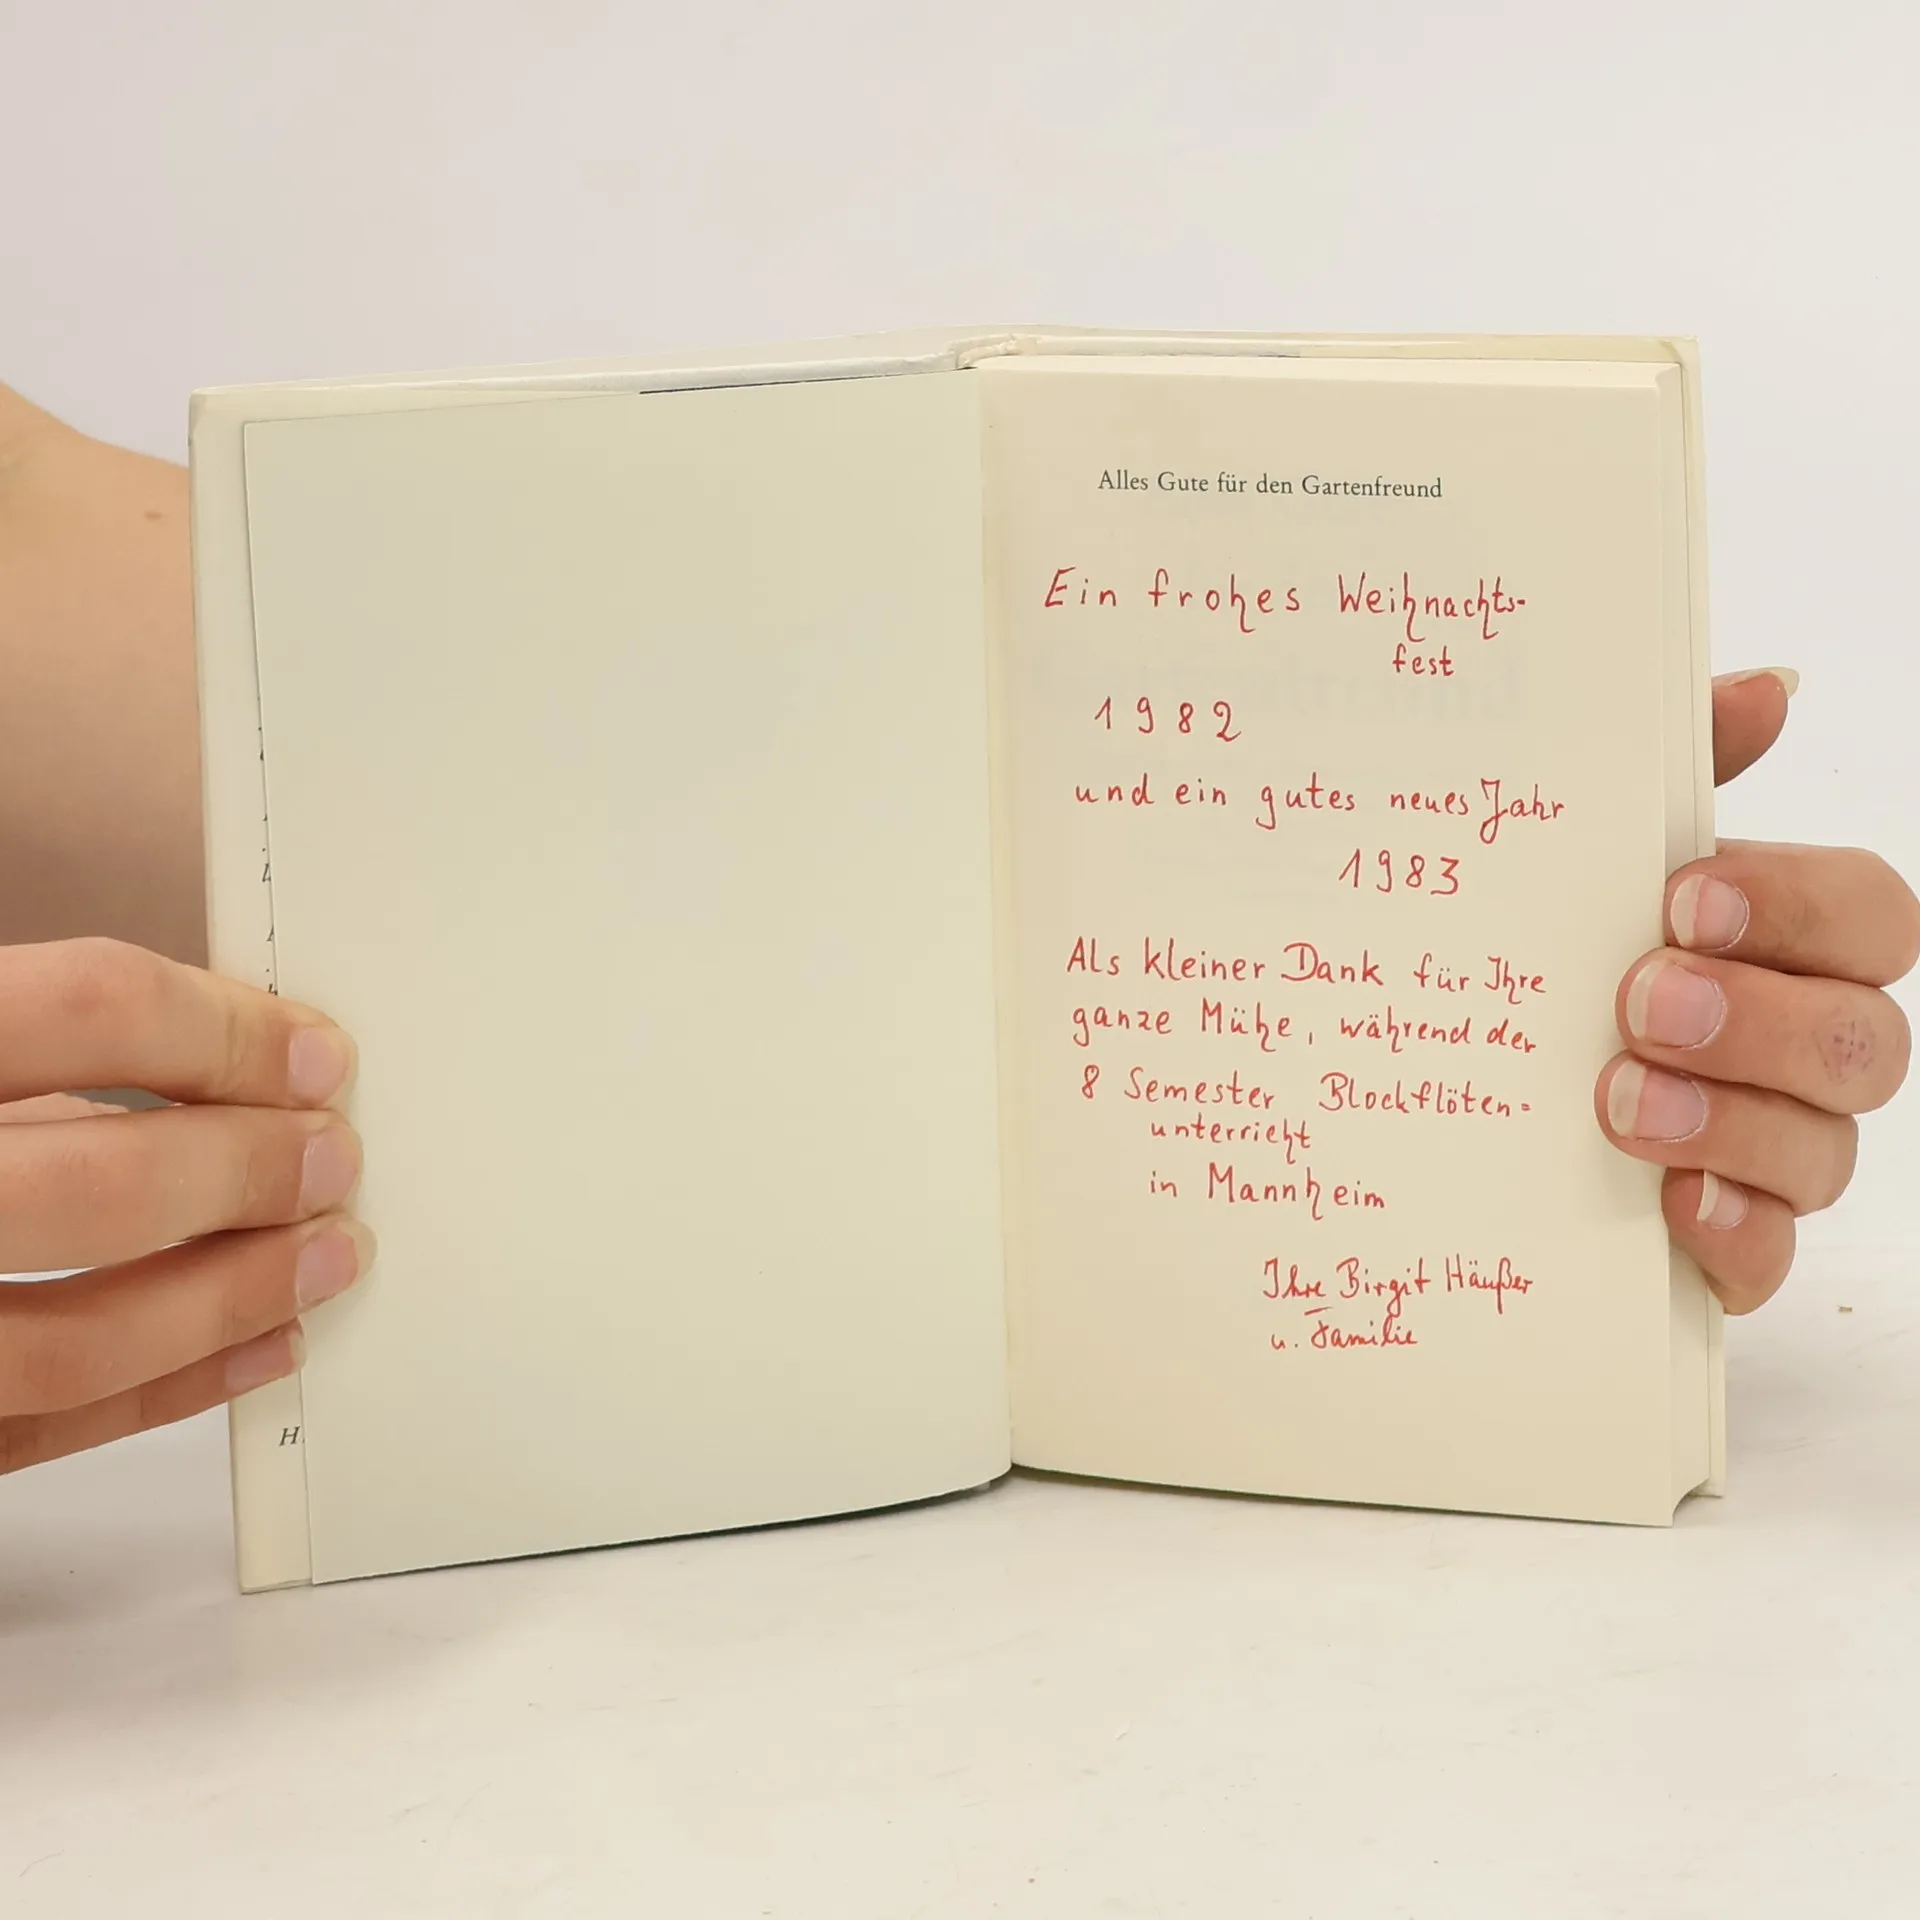 Alles Gute für den Gartenfreund
Ein frohes Weihnachts-
fest
1982
und ein gutes neues Jahr
1983
Als kleiner Dank für Ihre
ganze Mühe, während der
8 Semester Blockflöten=
unterricht
in Mannheim
Ihre Birgit Häußer
u. Familie
H